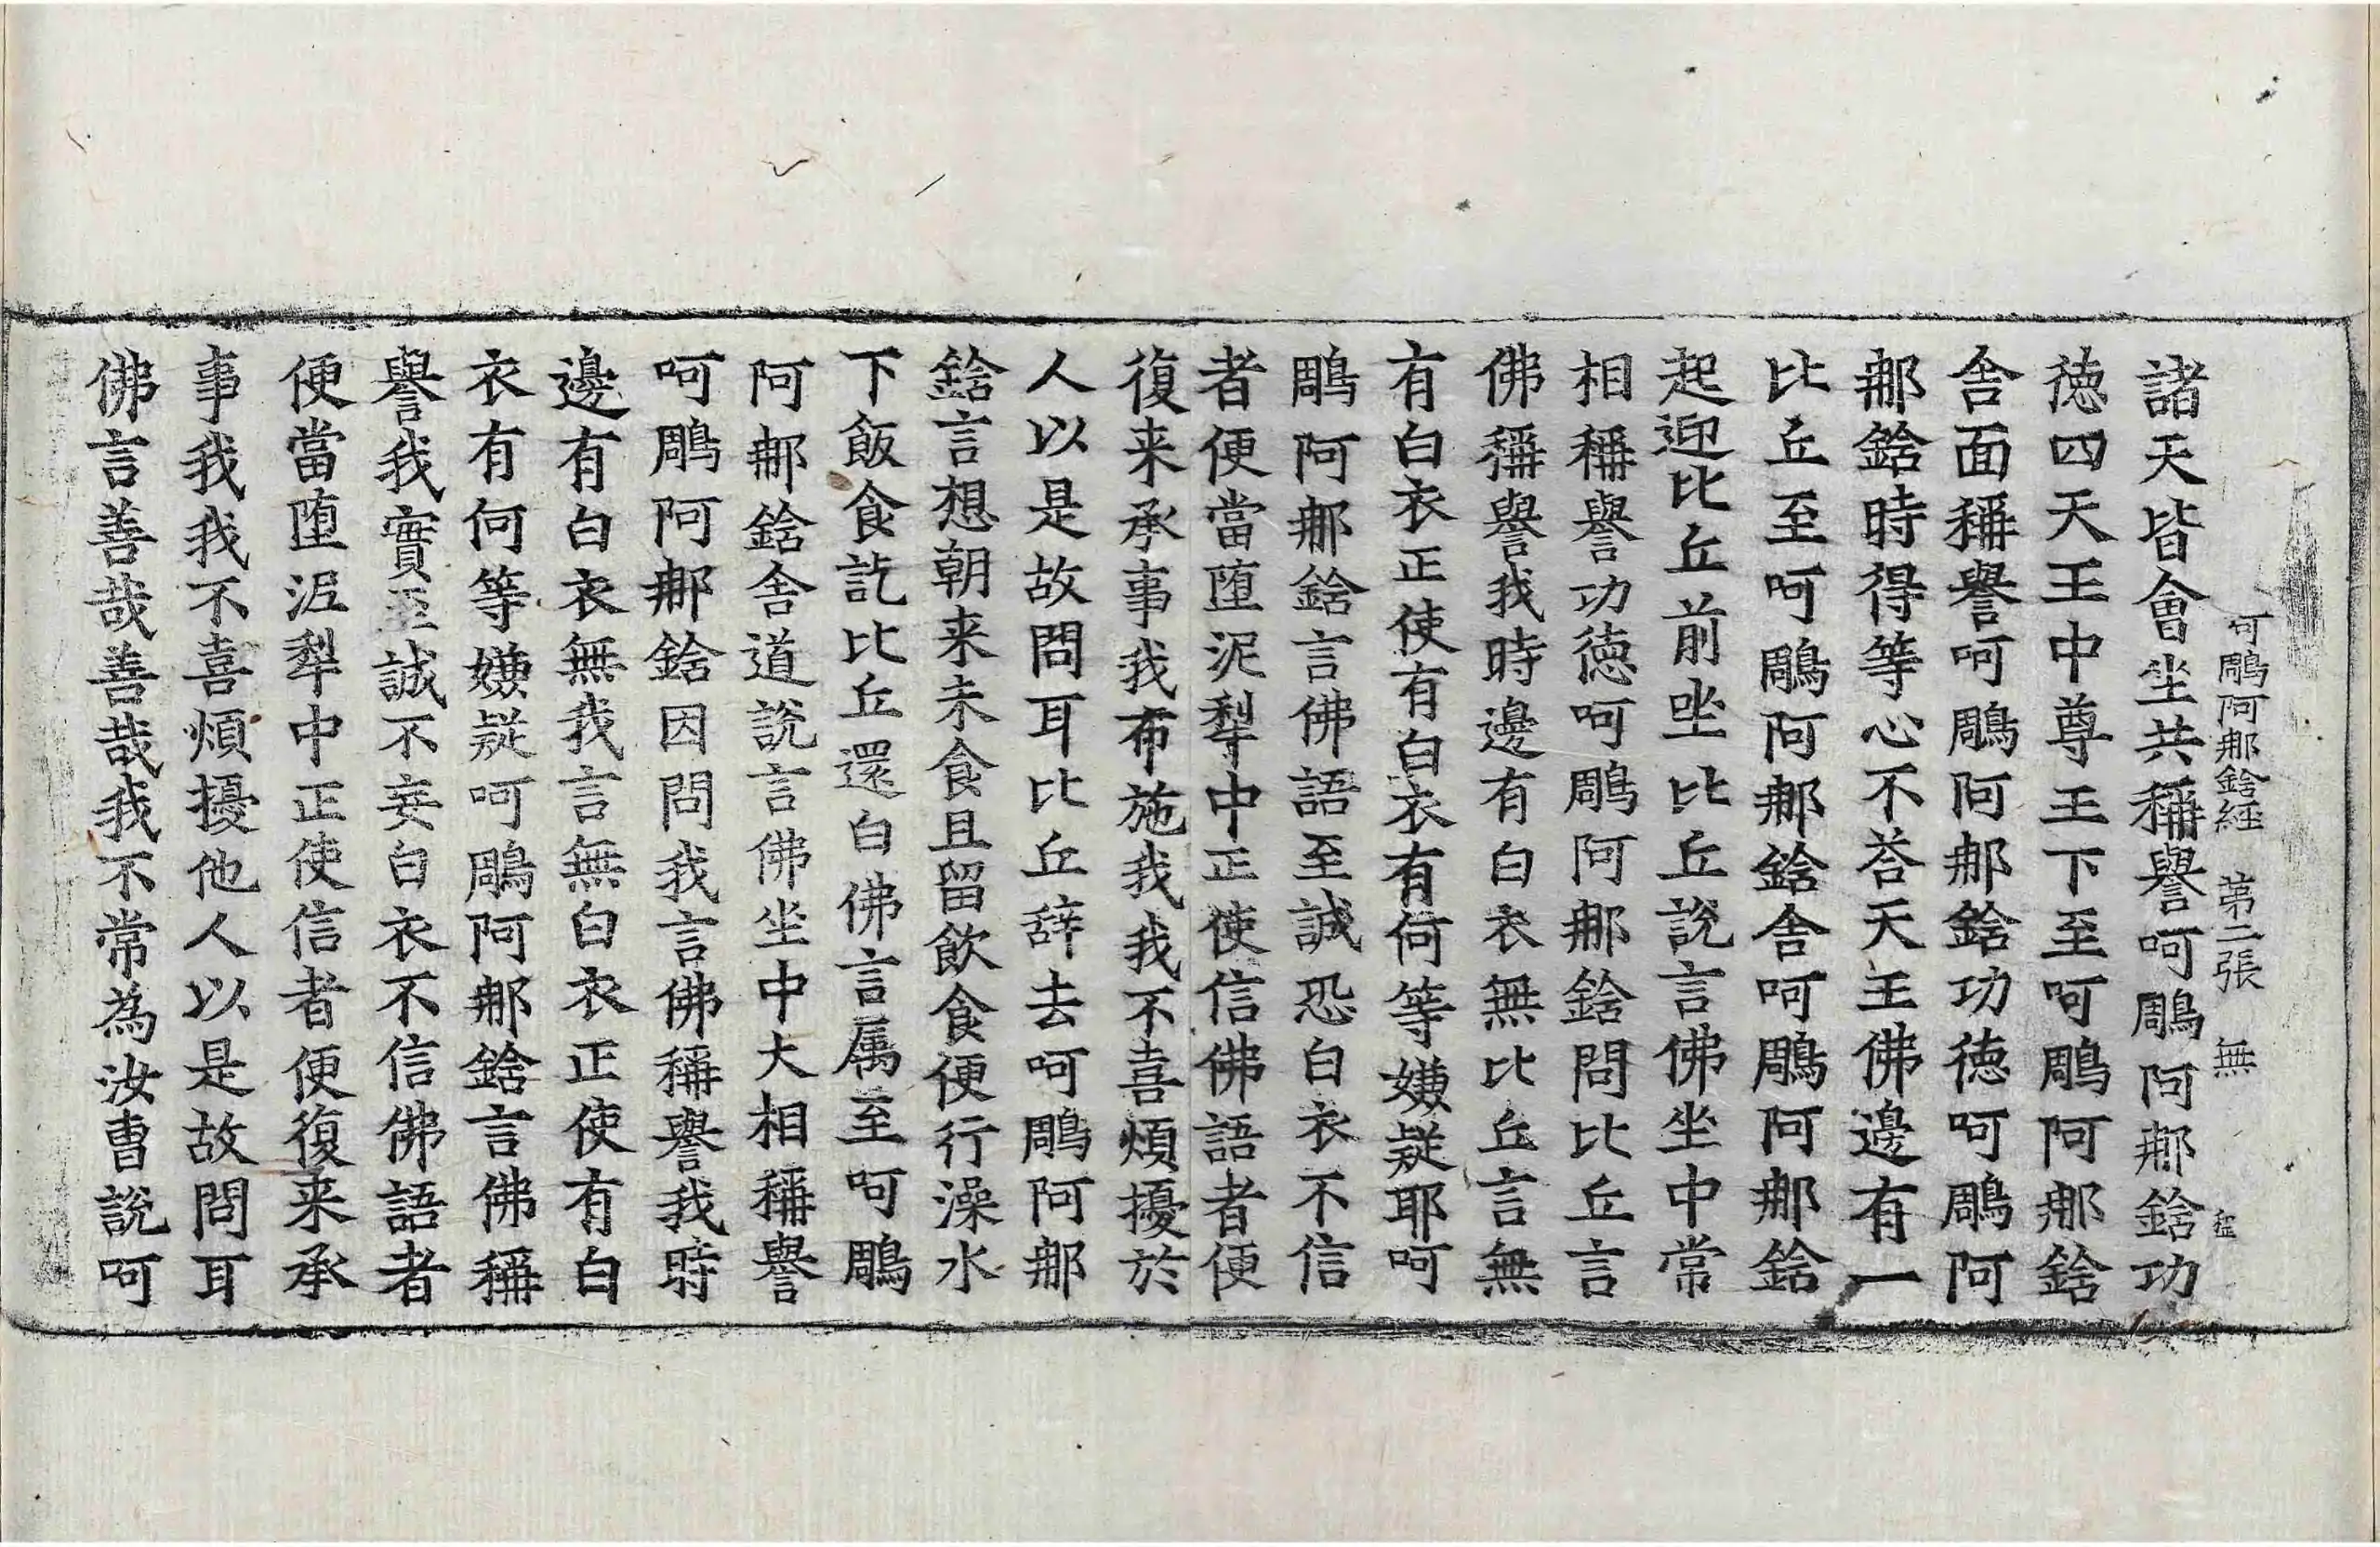 呵鵰阿那鋡経 第二張 無
諸天皆會坐共稱譽呵鵰阿那鋡功
徳四天王中尊王下至呵鵰阿那鋡
舎面稱譽呵鵰阿那鋡功徳呵鵰阿
那鋡時得等心不荅天王佛邊有一
比丘至呵鵰阿那鋡舎呵鵰阿那鋡
起迎比丘前坐比丘說言佛坐中常
相稱譽功徳呵鵰阿那鋡問比丘言
佛稱譽我時邊有白衣無比丘言無
有白衣正使有白衣有何等嫌疑耶呵
鵰阿那鋡言佛語至誠恐白衣不信
者便當墮泥犁中正使信佛語者便
復来承事我布施我我不喜煩擾於
人以是故問耳比丘辞去呵鵰阿那
鋡言想朝来未食且留飲食便行澡水
下飯食訖比丘還白佛言属至呵鵰
阿那鋡舎道說言佛坐中大相稱譽
呵鵰阿那鋡因問我言佛稱譽我時
邊有白衣無我言無白衣正使有白
衣有何等嫌疑呵鵰阿那鋡言佛稱
譽我實至誠不妄白衣不信佛語者
便當堕泥犁中正使信者便復来承
事我我不喜煩擾他人以是故問耳
佛言善哉善哉我不常為汝曹說呵